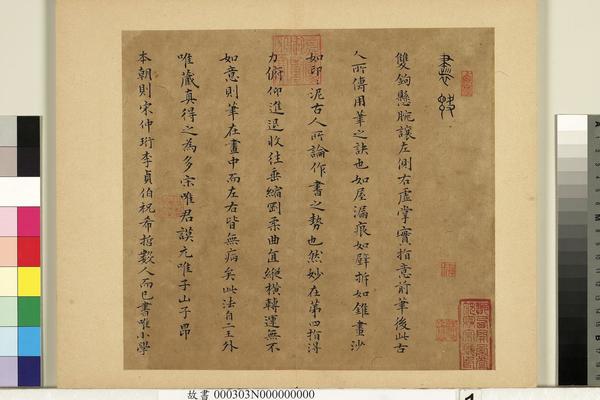 書勢
雙鉤懸腕讓左側右虛掌實指意前筆後此古
人所傳用筆之訣也如屋漏痕如壁拆如錐畫沙
如印印泥古人所論作書之勢也然妙在第四指得
力俯仰進退收往垂縮剛柔曲直縱橫轉運無不
如意則筆在畫中而左右皆無病矣此法自二王外
唯藏真得之為多宋唯君謨元唯子山子昂
本朝則宋仲珩李貞伯祝希哲數人而已書唯小學
故書 000303N000000000